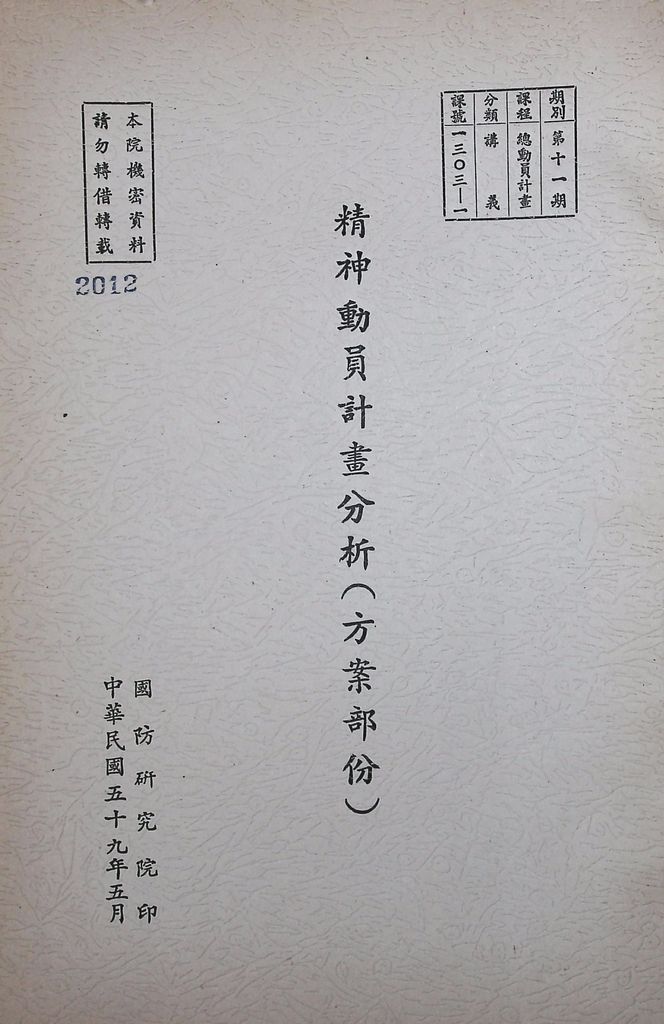 期別 第十一期
課程 總動員計畫
分類 講義
課號 一三〇三—一
精神動員計畫分析(方案部份)
本院機密資料
請勿轉借轉載
2012
國防研究院印
中華民國五十九年五月